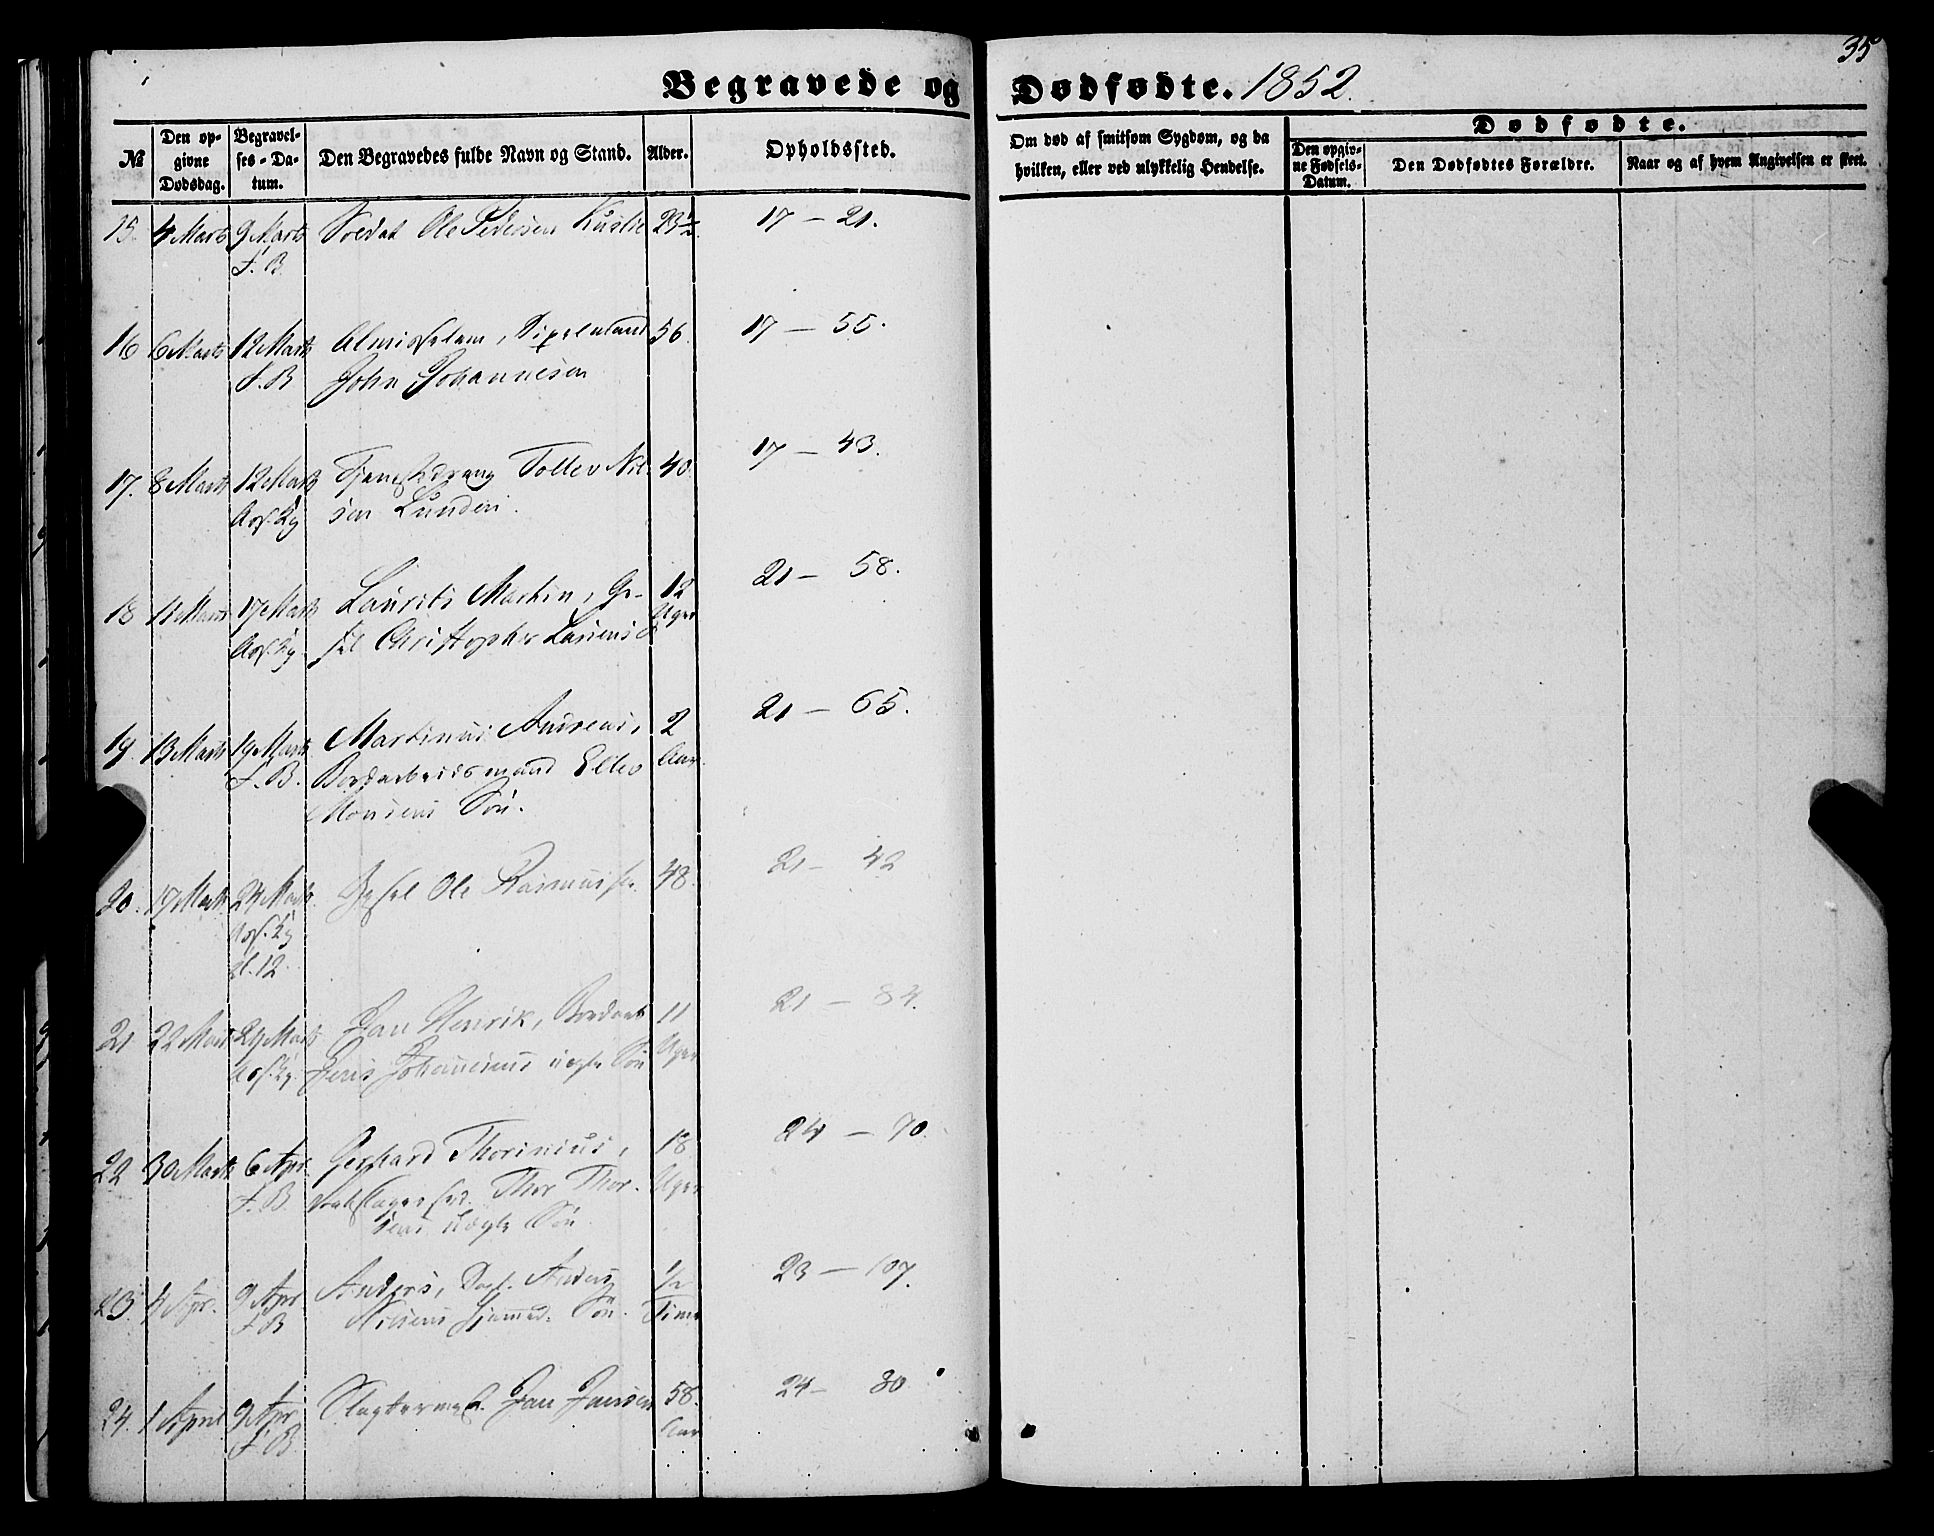 35
Begravede og Dødfødte. 1852.
№
Den opgivne Dødsdag.
Begravelses-Datum.
Den Begravedes fulde Navn og Stand.
Alder.
Opholdssted.
Om død af smitsom Sygdom, og da hvilken, eller ved ulykkelig Hendelse.
Dødfødte.
Den opgivne Fødsels-Datum.
Den Dødfødtes Forældre.
Naar og af hvem Angivelsen er skeet.
15. 4 Marts 9 Marts Soldat Ole Pedersen 23½ 17 – 21.
F. B.
16 6 Marts 12 Marts 56. 17 – 55.
F. B John Johannesen
17. 8 Marts 12 Marts Tollev Nil- 40. 17 – 43.
sen Lunden.
18 11 Marts 17 Marts Laurits Martin, Ge- 12 21 – 58.
sel Christopher Uger
19. 13 Marts 19 Marts Martinus Andreas, 2 21 – 65.
F. B. Bordarbeidsmand Ellev Aar
Monsens Søn.
20. 17 Marts 24 Marts Gesel Ole Rasmussen 48. 21 – 42
Kl. 12.
21 22 Mart 24 Marts Jan Henrik, 11 21 – 84.
Jens Johannesens uægte Søn Uger
22 30 Marts 6 Apr. Gerhard Thorinius, 18 24 – 90.
F. B. Thor Thor- Uger
sens uægte Søn
23. 4 Apr. 9 Apr Anders, Anders ½ 23 – 107.
F B Nilsens Søn. Time
24. 1 April 9 Apr Jan Jansen 58. 24 – 80
F. B Aar